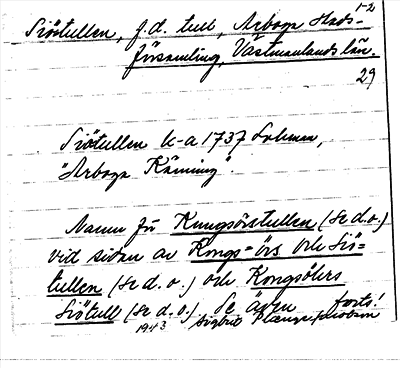 1-2
Sjötullen, f.d. tull, Arboga stads-
församling, Västmanlands län.
29
Sjötullen k-a 1737 Lohman,
"Arboga Känning".
Namn för Kungsörstullen (se d.o.)
vid sidan av Kongs-örs och Siö-
tullen (se d.o.) och Kongsöhrs
Siötull (se d.o.) Se även forts!
1943 Sigbrit Plænge Jacobson